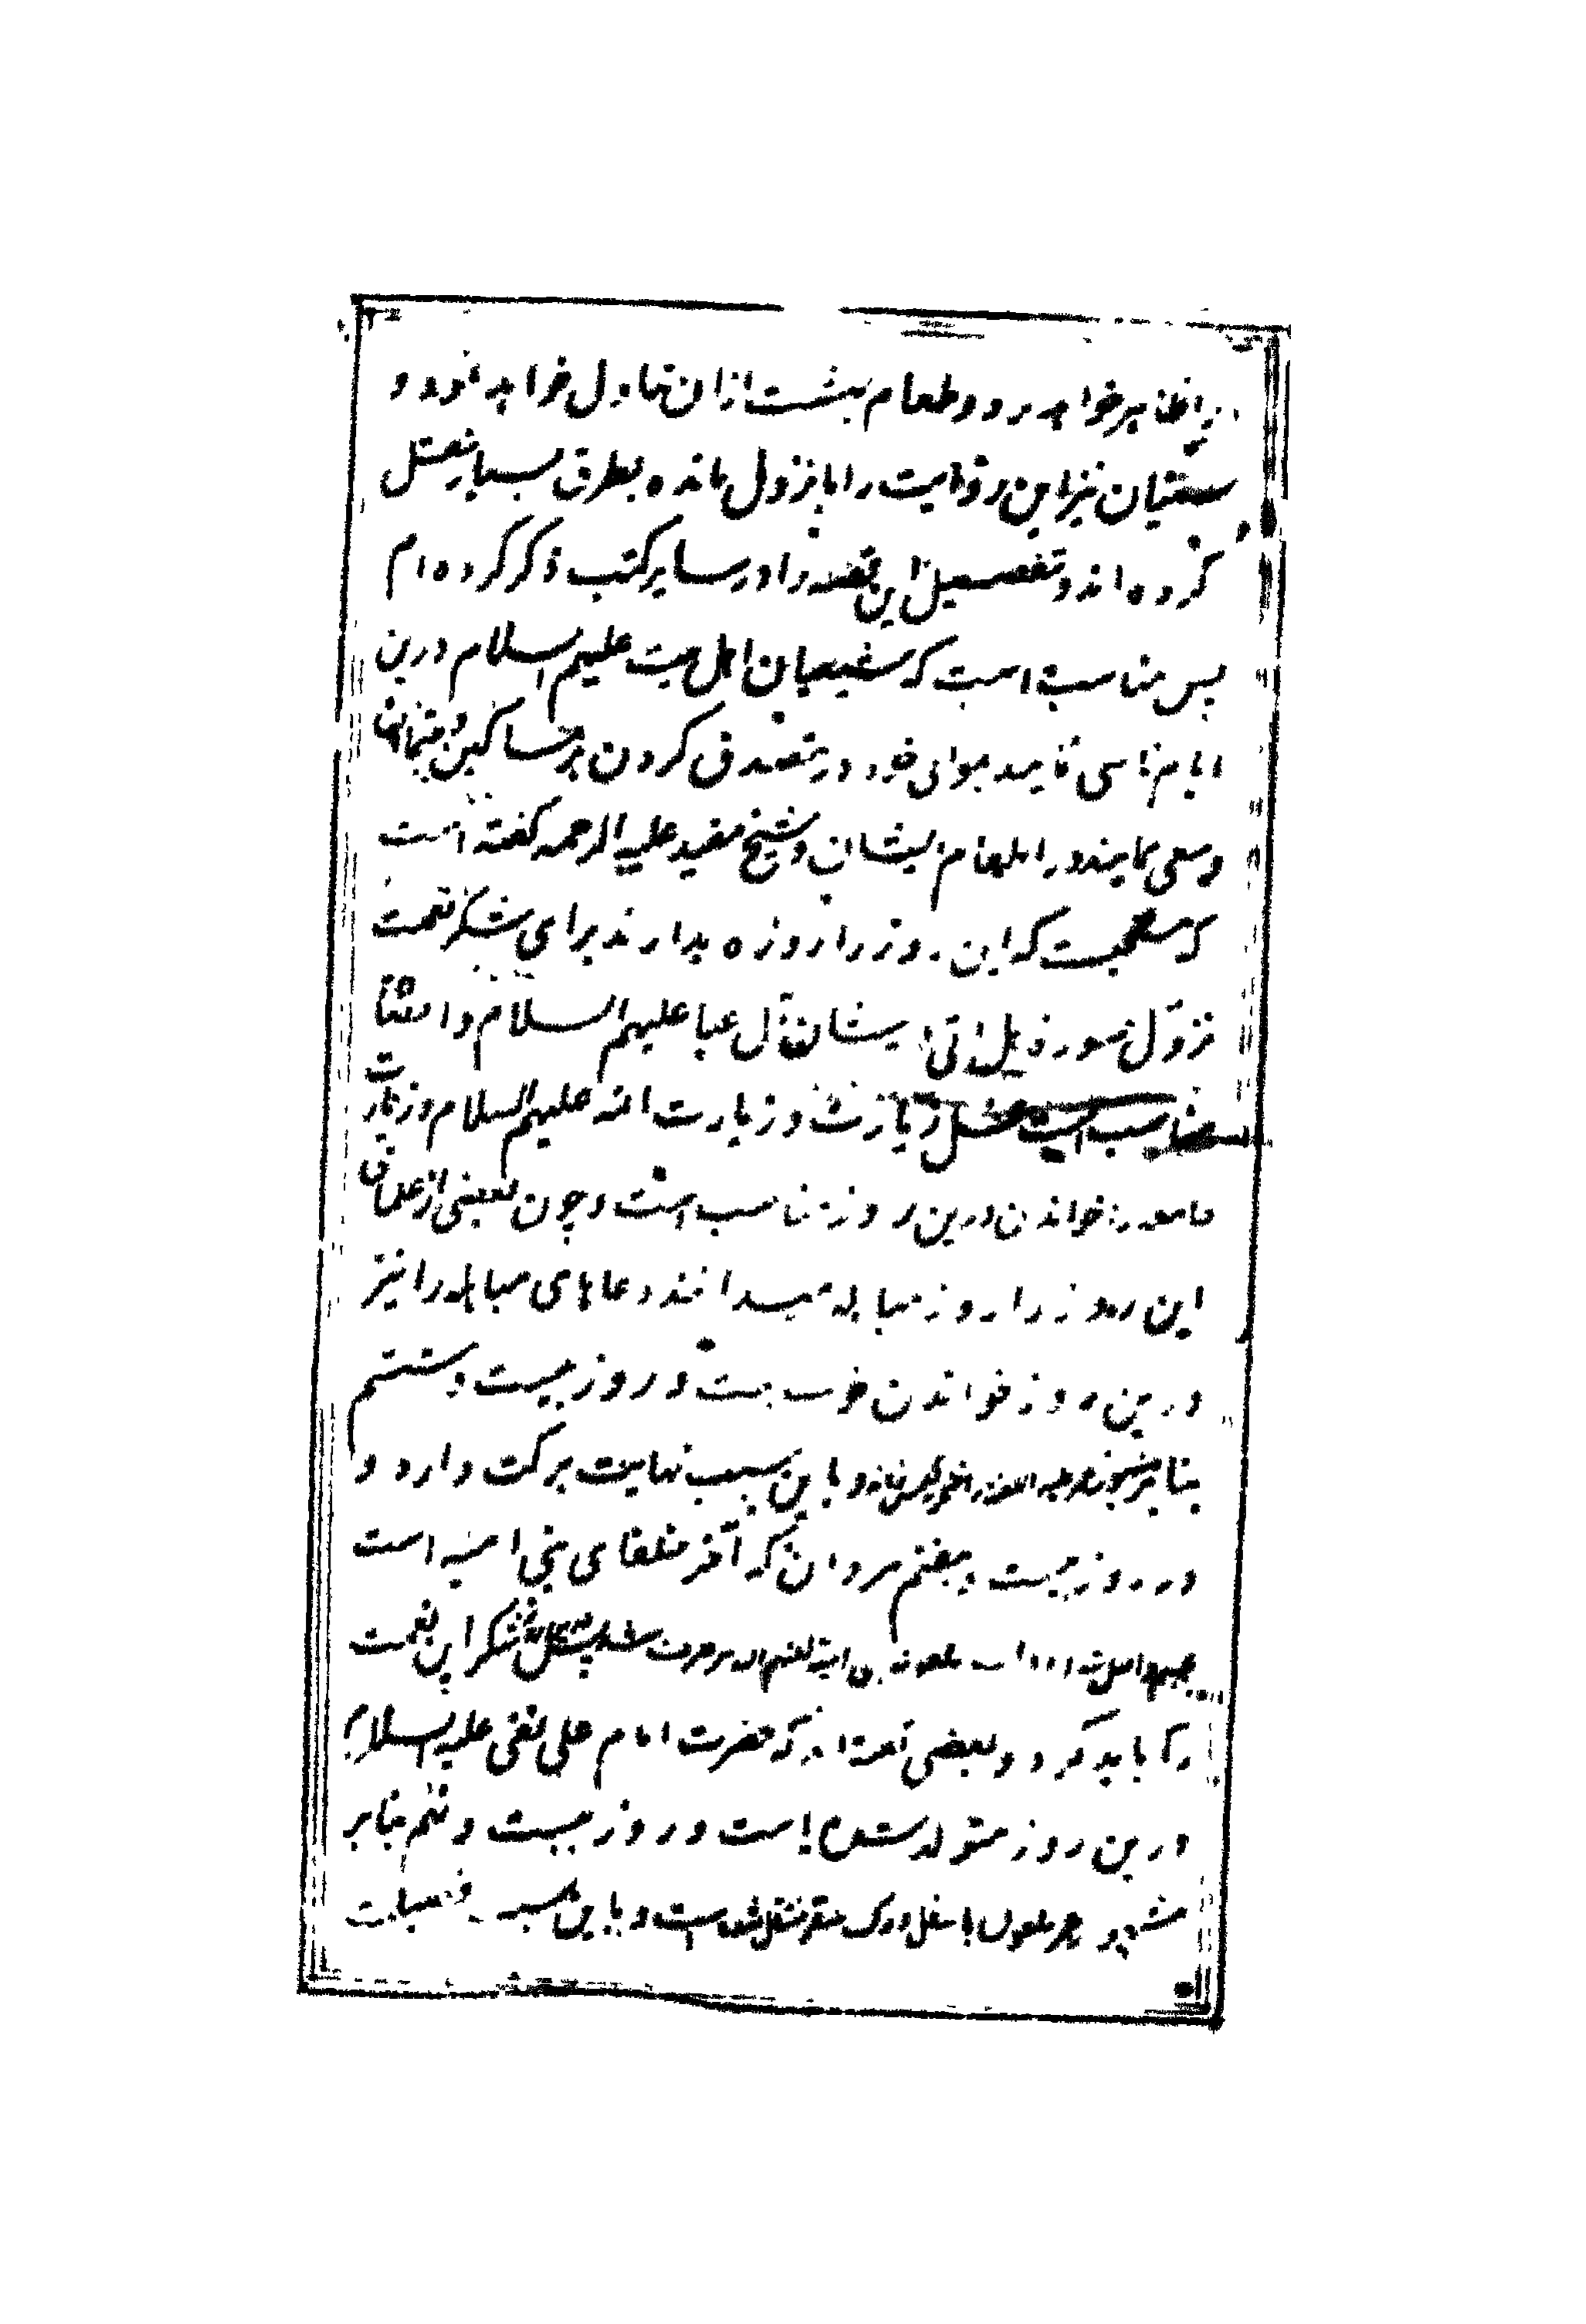 ظاهر خواهد و طعام بهشت ازان تناول خواهد نمود و
سنیان نیز این روایت را با نزول مائده بطرق بسیار نقل
کرده اند و تفصیل این قصه را در سایر کتب ذکر کرده ام
پس مناسب است که شیعیان اهل بیت علیهم السلام درین
ایام تاسی نمایند بموالی خود در تصدق کردن بر مساکین و یتیمان
و سعی نمایند در اطعام ایشان و شیخ مفید علیه الرحمه گفته است
که مستحبست که این روز را روزه بدارند برای شکر نعمت
نزول سوره هل اتی در شان آل عبا علیهم السلام و امثال
مناسب است غسل و زیارت ائمه علیهم السلام و زیارت
خواندن درین روز مناسب است و چون بعضی از علما
این روز را روز مباهله میدانند دعاهای مباهله را نیز
درین روز خواندن خوب است و روز بیست و ششم
بنابر مشهور و باین سبب نهایت برکت دارد و
در روز بیست و هفتم مروان که آخر خلفای بنی امیه است
شکر این نعمت
را باید کرد و بعضی گفته اند که حضرت امام علی نقی علیه السلام
درین روز متولد شده است و روز بیست و نهم بنابر
مشهور باسفل درک سقر منتقل شده است و باین سبب فضیلت